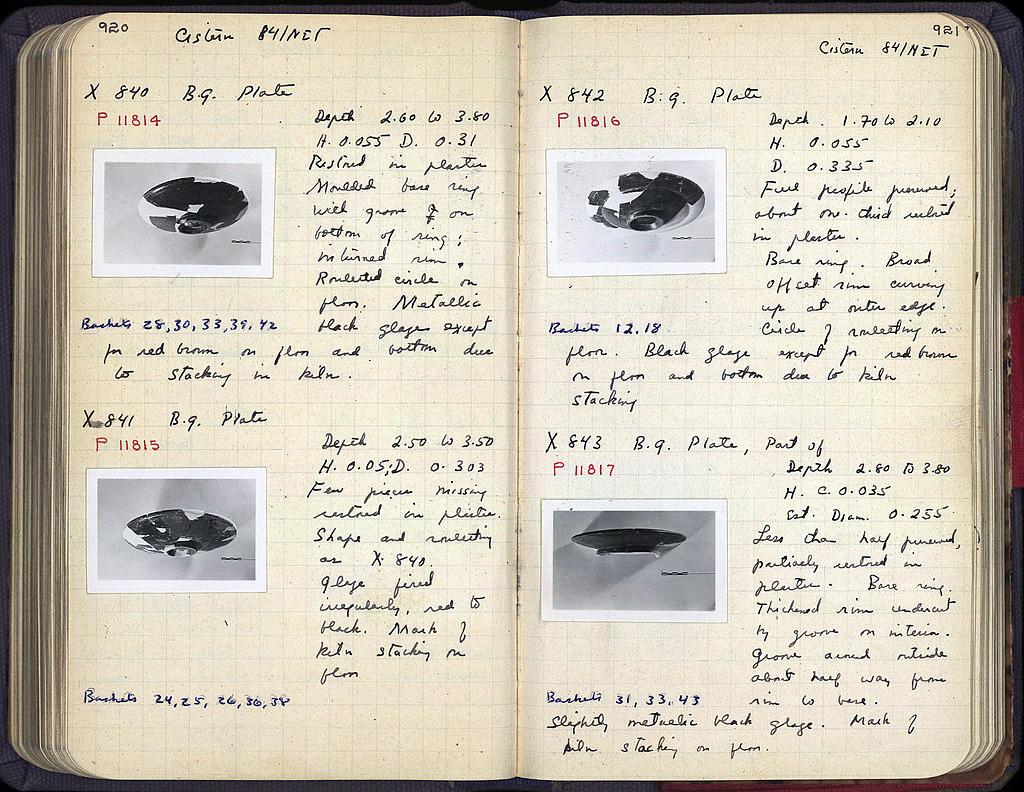 920
Cistern 84/NET
X 840 B.g. Plate
P 11814
Depth 2.60 to 3.80
H. 0.055 D. 0.31
Restored in plaster
Moulded base ring
with groove on
bottom of ring;
inturned rim.
Rouletted circle on
floor. Metallic
Baskets 28, 30, 33, 39, 42
black glaze except
for red brown on floor and bottom due
to stacking in kiln.
X 841 B.g. Plate
P 11815
Depth 2.50 to 3.50
H. 0.05; D. 0.303
Few pieces missing
restored in plaster.
Shape and rouletting
as X 840.
Glaze fired
irregularly, red to
black. Mark of
kiln stacking on
floor
Baskets 24, 25, 26, 36, 38
921
Cistern 84/NET
X 842 B.g. Plate
P 11816
Depth. 1.70 to 2.10
H. 0.055
D. 0.335
Full profile preserved;
about one-third restored
in plaster.
Base ring. Broad
offset rim curving
up at outer edge.
Baskets 12, 18
Circle of rouletting on
floor. Black glaze except for red brown
on floor and bottom due to kiln
stacking
X 843 B.g. Plate, Part of
P 11817
Depth 2.80 to 3.80
H. C. 0.035
Est. Diam. 0.255
Less than half preserved,
partially restored in
plaster. Base ring.
Thickened rim undercut
by groove on interior.
Groove around outside
about half way from
Baskets 31, 33, 43
rim to base.
Slightly metallic black glaze. Mark of
kiln stacking on floor.